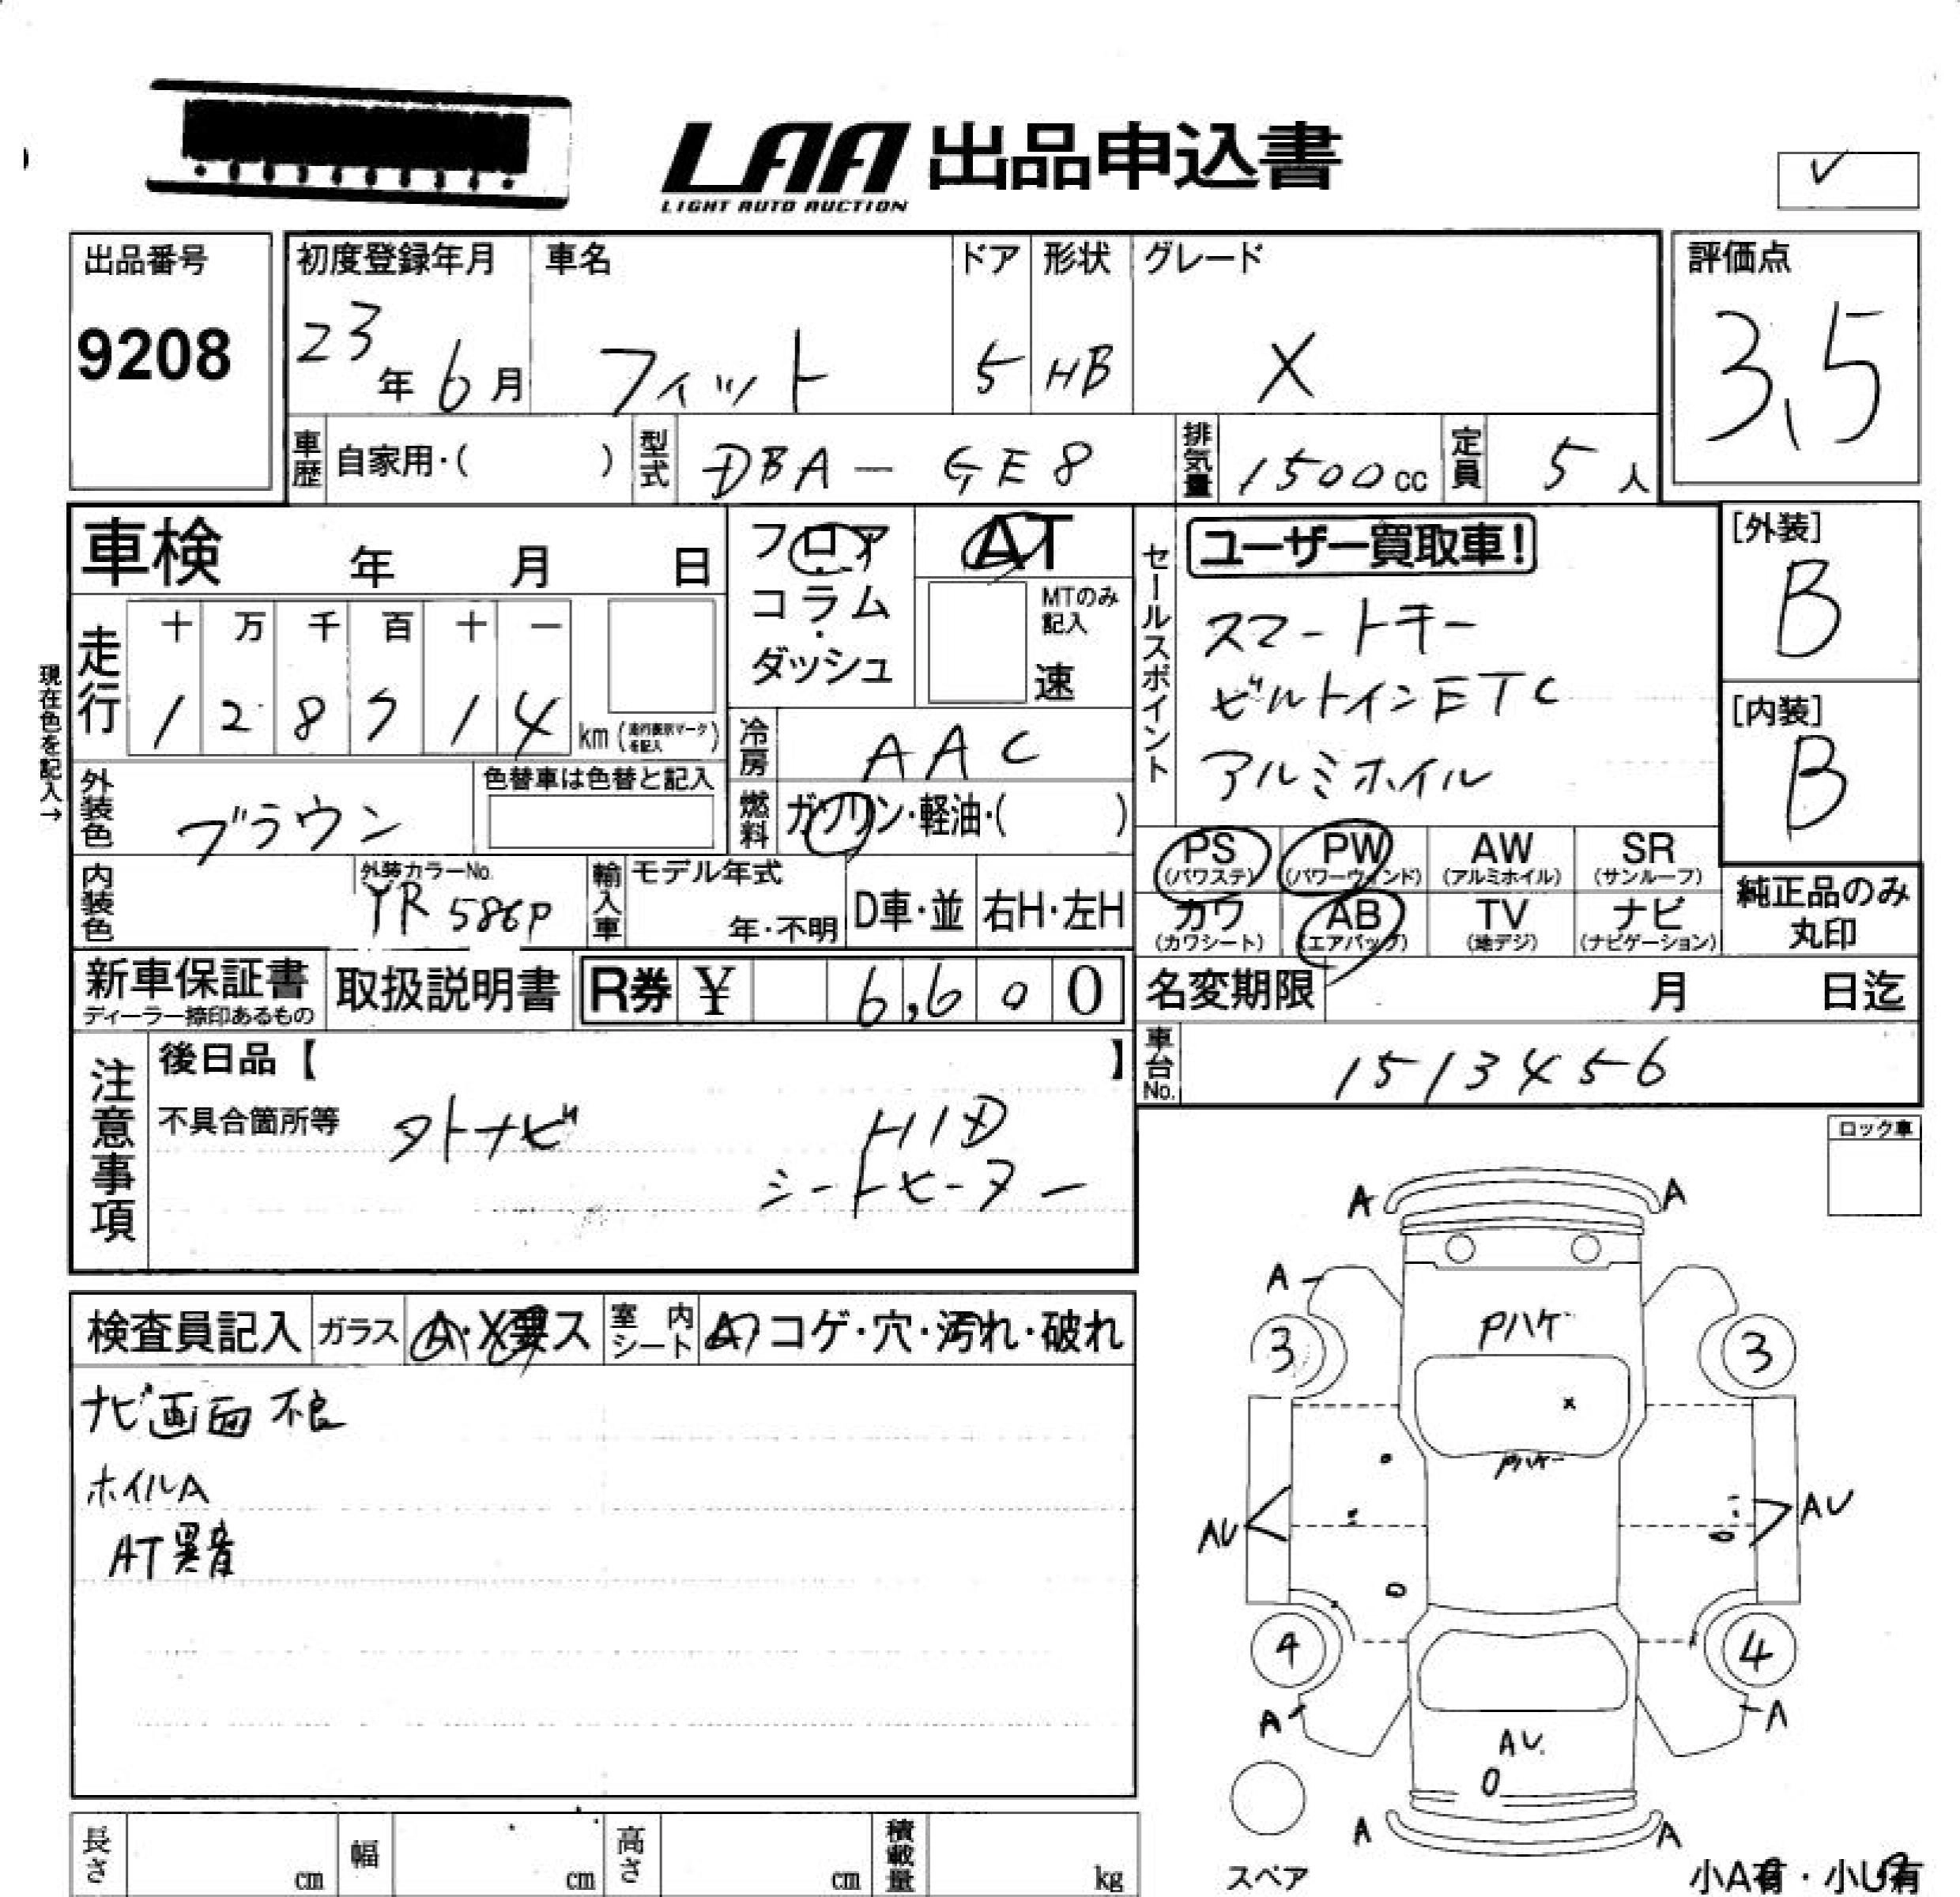 LAA 出品申込書
LIGHT AUTO AUCTION
✓
出品番号
9208
初度登録年月
23年6月
車名
フィット
ドア
5
形状
HB
グレード
X
評価点
3.5
車歴 自家用・( )
型式 DBA-GE8
排気量 1500cc
定員 5人
車検 年 月 日
フロア・コラム・ダッシュ
AT
MTのみ記入
速
セールスポイント
ユーザー買取車!
スマートキー
ビルトインETC
アルミホイル
[外装]
B
[内装]
B
現在色を記入→
走行
十 万 千 百 十 一
1 2 8 5 1 4 km (走行表示マークを記入)
冷房 AAC
外装色 ブラウン
色替車は色替と記入
燃料 ガソリン・軽油・( )
PS (パワステ)
PW (パワーウインド)
AW (アルミホイル)
SR (サンルーフ)
カワ (カワシート)
AB (エアバッグ)
TV (地デジ)
ナビ (ナビゲーション)
純正品のみ丸印
内装色
外装カラーNo.
YR586P
輸入車 モデル年式
年・不明
D車・並
右H・左H
新車保証書
ディーラー捺印あるもの
取扱説明書
R券 ¥ 6,600
名変期限 月 日迄
車台No. 1513456
注意事項
後日品【 】
不具合箇所等
タトナビ HID
シートヒーター
ロック車
検査員記入
ガラス A・X要ス
室内シート コゲ・穴・汚れ・破れ
ナビ画面不良
ホイルA
AT異音
A A
A
Pハゲ
3 3
x
Pハゲ
AU AU
4 4
A A
AU.
A A
スペア
小A有・小U有
長さ cm
幅 cm
高さ cm
積載量 kg